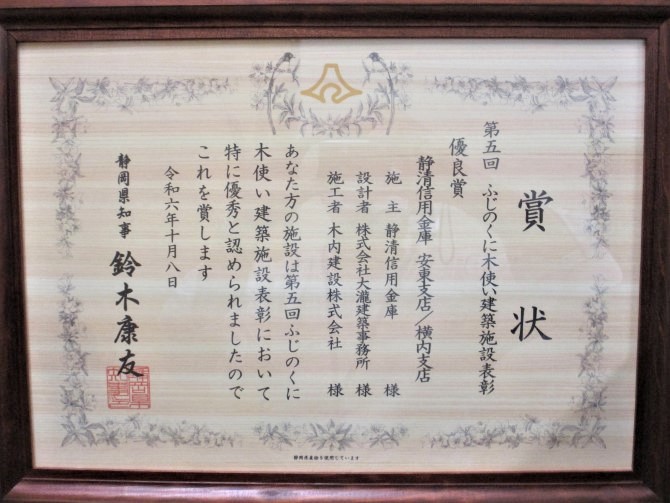 賞状
第五回 ふじのくに木使い建築施設表彰
優良賞
静清信用金庫 安東支店／横内支店
施主 静清信用金庫 様
設計者 株式会社大瀧建築事務所 様
施工者 木内建設株式会社 様
あなた方の施設は第五回ふじのくに
木使い建築施設表彰において
特に優秀と認められましたので
これを賞します
令和六年十月八日
静岡県知事 鈴木康友